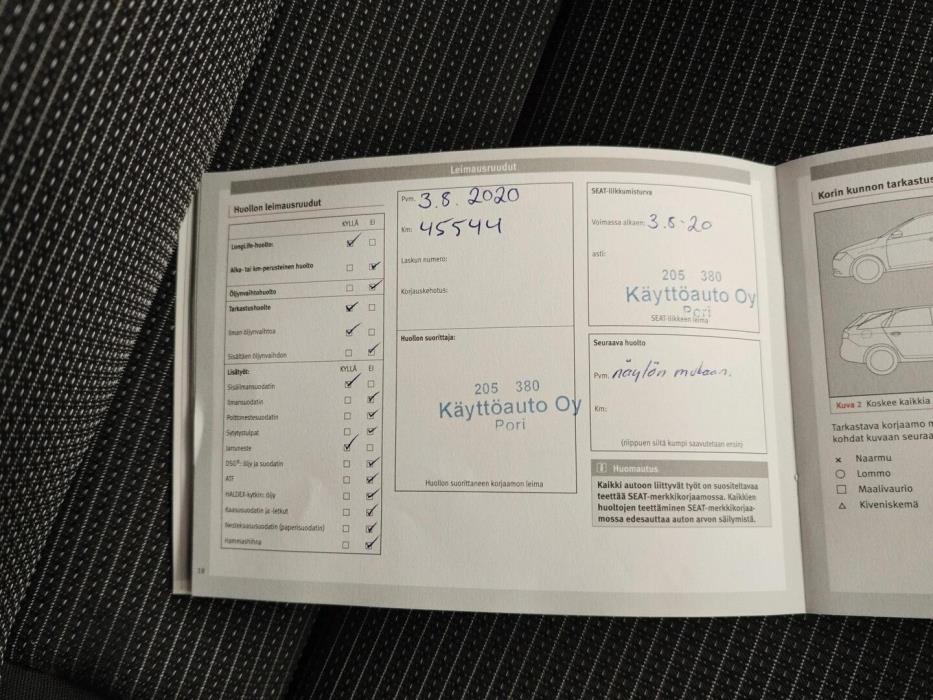 Leimausruudut
Huollon leimausruudut
KYLLÄ EI
LongLife-huolto:
Aika- tai km-perusteinen huolto
Öljynvaihtohuolto
Tarkastushuolto
Ilman öljynvaihtoa
Sisältäen öljynvaihdon
Lisätyöt: KYLLÄ EI
Sisäilmansuodatin
Ilmansuodatin
Polttonestesuodatin
Sytytystulpat
Jarruneste
DSG®: öljy ja suodatin
ATF
HALDEX-kytkin: öljy
Kaasusuodatin ja -letkut
Nestekaasusuodatin (paperisuodatin)
Hammashihna
18
Pvm. 3.8. 2020
Km: 45544
Laskun numero:
Korjauskehotus:
Huollon suorittaja:
205 380
Käyttöauto Oy
Pori
Huollon suorittaneen korjaamon leima
SEAT-liikkumisturva
Voimassa alkaen: 3.8-20
asti:
205 380
Käyttöauto Oy
Pori
SEAT-liikkeen leima
Seuraava huolto
Pvm. näytön mukaan.
Km:
(riippuen siitä kumpi saavutetaan ensin)
i Huomautus
Kaikki autoon liittyvät työt on suositeltavaa
teettää SEAT-merkkikorjaamossa. Kaikkien
huoltojen teettäminen SEAT-merkkikorjaa-
mossa edesauttaa auton arvon säilymistä.
Korin kunnon tarkastus
Kuva 2 Koskee kaikkia
Tarkastava korjaamo m
kohdat kuvaan seuraa
× Naarmu
○ Lommo
□ Maalivaurio
△ Kiveniskemä